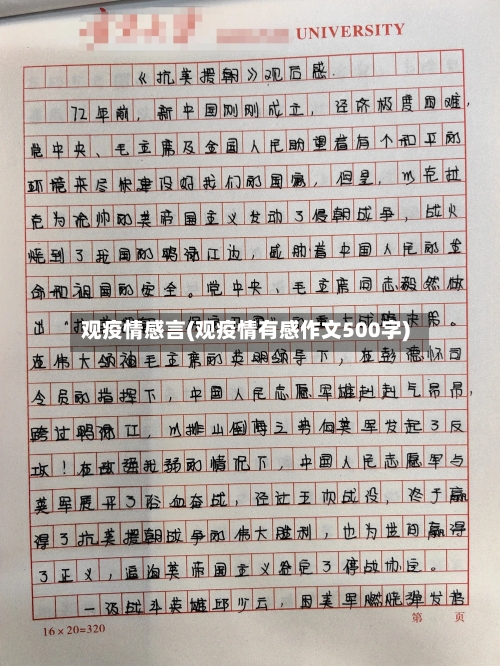 UNIVERSITY
《抗美援朝》观后感.
72年前，新中国刚刚成立，经济极度困难，
党中央、毛主席及全国人民盼望着有个和平的
环境来尽快建设好我们的国家，但是，以克拉
克为统帅的美帝国主义发动了侵朝战争，战火
烧到了我国的鸭渌江边，威胁着中国人民的生
命和祖国的安全。党中央、毛主席同志毅然做
出"抗美援朝
观疫情感言(观疫情有感作文500字)
在伟大领袖毛主席的英明领导下，在彭德怀司
令员的指挥下，中国人民志愿军雄赳赳气昂昂，
跨过鸭渌江，以排山倒海之势向美军发起了反
攻！在敌强我弱的情况下，中国人民志愿军与
美军展开了浴血奋战，经过五次战役，终于赢
得了抗美援朝战争的伟大胜利，也为世间赢得
了正义，逼迫美帝国主义签定了停战协定。
一级战斗英雄邱少云，因美军燃烧弹发着
16×20=320 第 页